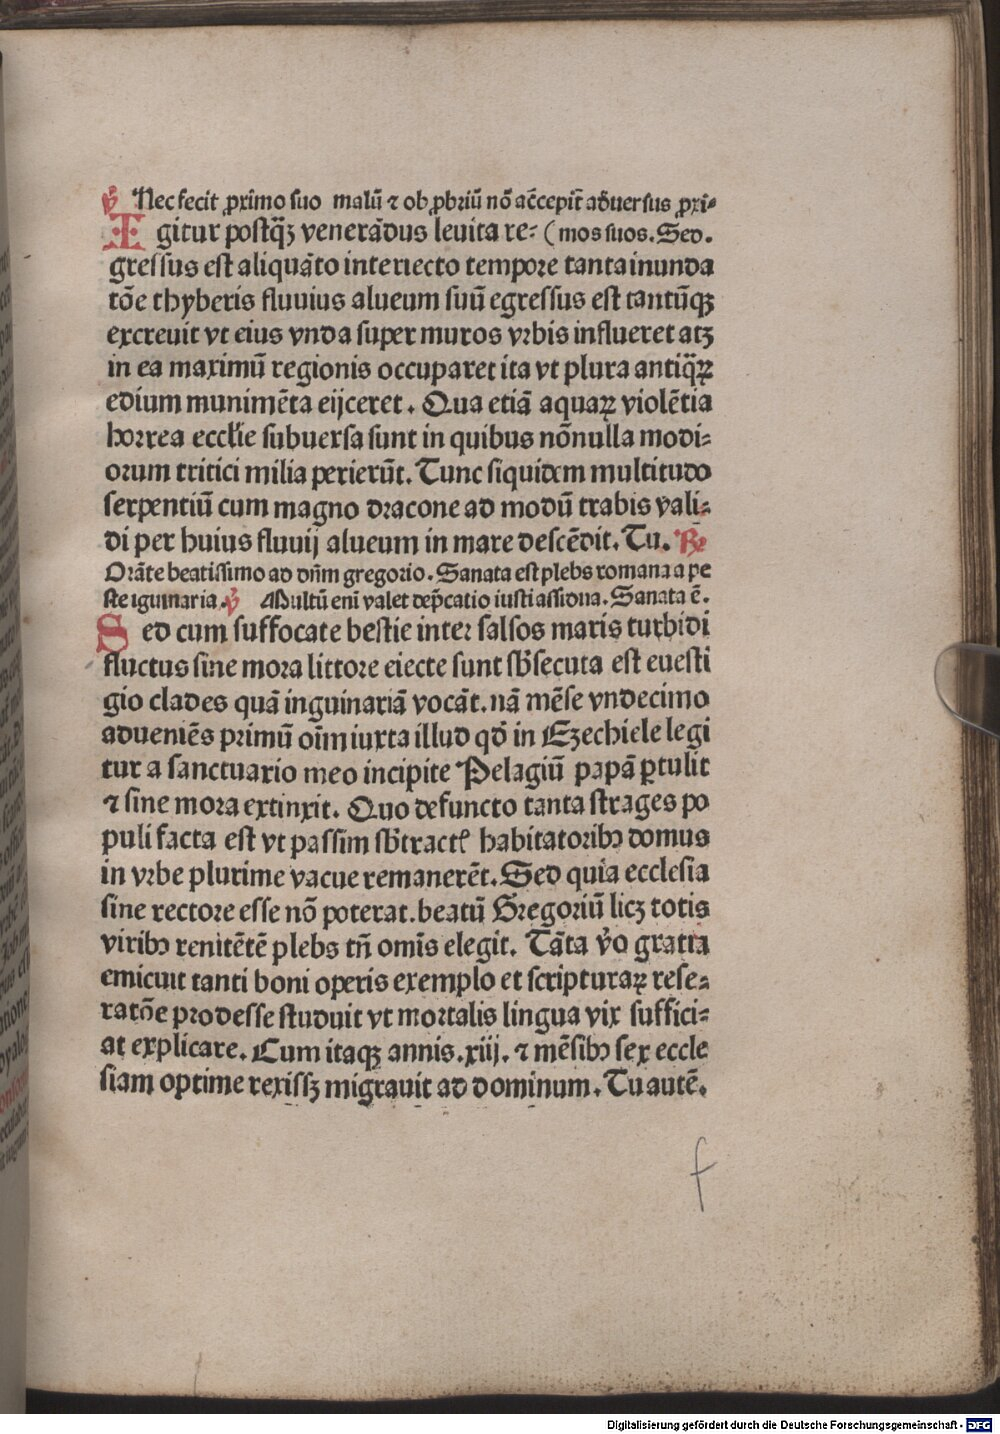 ℣ Nec fecit ꝓximo suo malū ⁊ obꝓbriū nō acc̄epit̄ aduersus ꝓxi⸗
Igitur postq̄ꝫ venerādus leuita re⸗ (mos suos. Sed.
gressus est aliquāto interiecto tempore tanta inunda
tōe thyberis fluuius alueum suū egressus est tantūqꝫ
excreuit vt eius vnda super muros vrbis influeret atꝫ
in ea maximū regionis occuparet ita vt plura antiq̄ꝝ
edium munimēta eijceret. Qua etiā aquaꝝ violētia
horrea eccłie subuersa sunt in quibus nōnulla modi⸗
orum tritici milia perierūt. Tunc siquidem multitudo
serpentiū cum magno dracone ad modū trabis vali⸗
di per huius fluuij alueum in mare descēdit. Tu. ℞
Orāte beatissimo ad dn̄m gregorio. Sanata est plebs romana a pe
ste iguinaria. ℣ Multū eni valet dep̄catio iusti assidua. Sanata ē.
Sed cum suffocate bestie inter salsos maris turbidi
fluctus sine mora littore eiecte sunt sb̄secuta est euesti
gio clades quā inguinariā vocāt. nā mēse vndecimo
adueniēs primū oīm iuxta illud qd̄ in Ezechiele legi
tur a sanctuario meo incipite Pelagiū papā ꝑtulit
⁊ sine mora extinxit. Quo defuncto tanta strages po
puli facta est vt passim sb̄tractꝭ habitatoribꝰ domus
in vrbe plurime vacue remanerēt. Sed quia ecclesia
sine rectore esse nō poterat. beatū Gregoriū licꝫ totis
viribꝰ renitētē plebs tn̄ omīs elegit. Tāta v̄o gratia
emicuit tanti boni operis exemplo et scripturaꝝ rese⸗
ratōe prodesse studuit vt mortalis lingua vix suffici⸗
at explicare. Cum itaqꝫ annis .xiij. ⁊ mēsibꝰ sex eccle
siam optime rexissꝫ migrauit ad dominum. Tu autē.
f
Digitalisierung gefördert durch die Deutsche Forschungsgemeinschaft - DFG